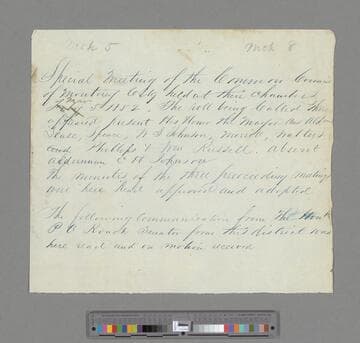 Mch 5 Mch 8
Special Meeting of the Common Council
of Monterey City held at their Chambers
5 1852. The roll being called there
appeared present His Honor the Mayor and Aldermen
Spence, W S Johnson, Merritt, Watters
and Phillips & Wm Russell. absent
alderman C H Johnson
The minutes of the three preceeding meetings
were here read approved and adopted
The following communication from the Honb
P A Roach Senator from this District was
here read and on motion received